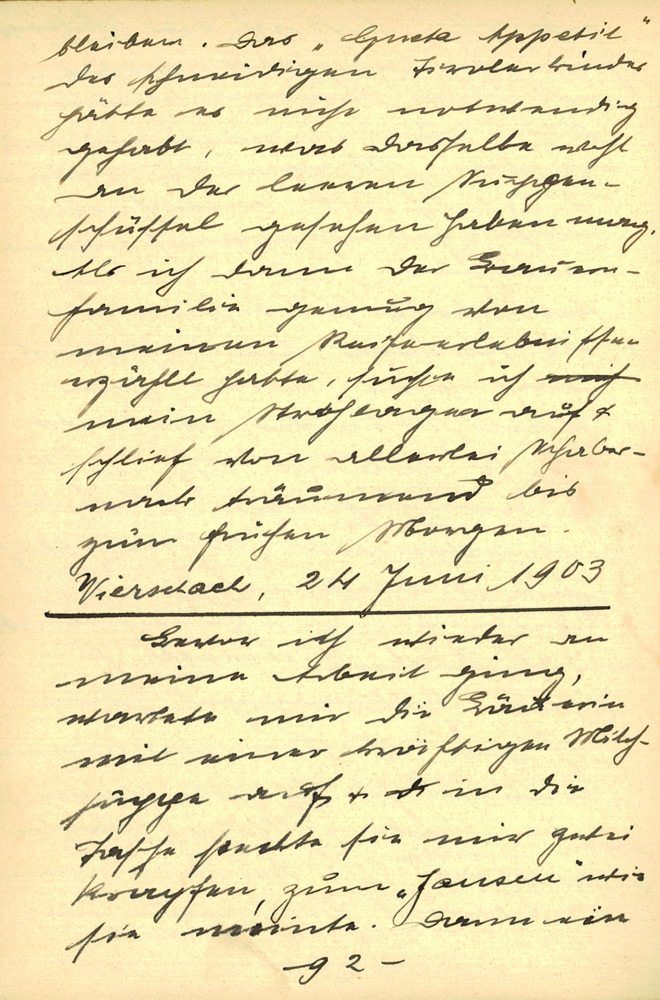 bleiben. Das „Guete Appetit"
des schneidigen Tirolerkindes
hätte es nicht notwendig
gehabt, was dasselbe wohl
an der leeren Suppen-
schüssel gesehen haben mag.
Als ich dann der Bauern-
familie genug von
meinen Reiseerlebnissen
erzählt hatte, suchte ich
mein Strohlager auf &
schlief von allerlei Schaber-
nack träumend bis
zum frühen Morgen.
Vierschach, 24 Juni 1903
Bevor ich wieder an
meine Arbeit ging,
wartete mir die Bäuerin
mit einer kräftigen Milch-
suppe auf & in die
Tasche steckte sie mir zwei
Krapfen, zum „Jausen" wie
sie meinte. Dann ein
- 92 -